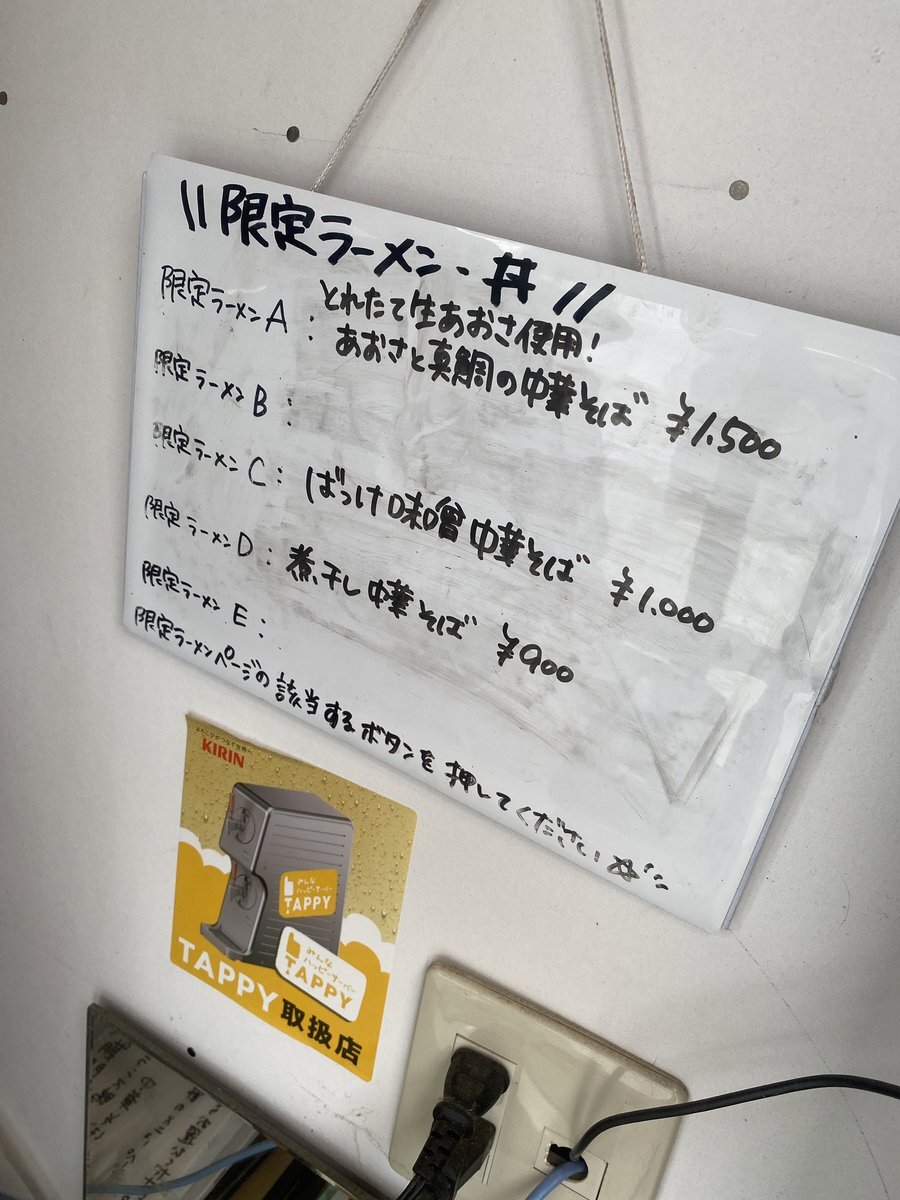 \\限定ラーメン・丼//
限定ラーメンA : とれたて生あおさ使用!
あおさと真鯛の中華そば ¥1.500
限定ラーメンB :
限定ラーメンC : ばっけ味噌中華そば ¥1.000
限定ラーメンD : 煮干し中華そば ¥900
限定ラーメンE :
限定ラーメンページの該当するボタンを押してください☆
よろこびがつなぐ世界へ
KIRIN
みんな
ハッピーサーバー
TAPPY
みんな
ハッピーサーバー
TAPPY
TAPPY取扱店